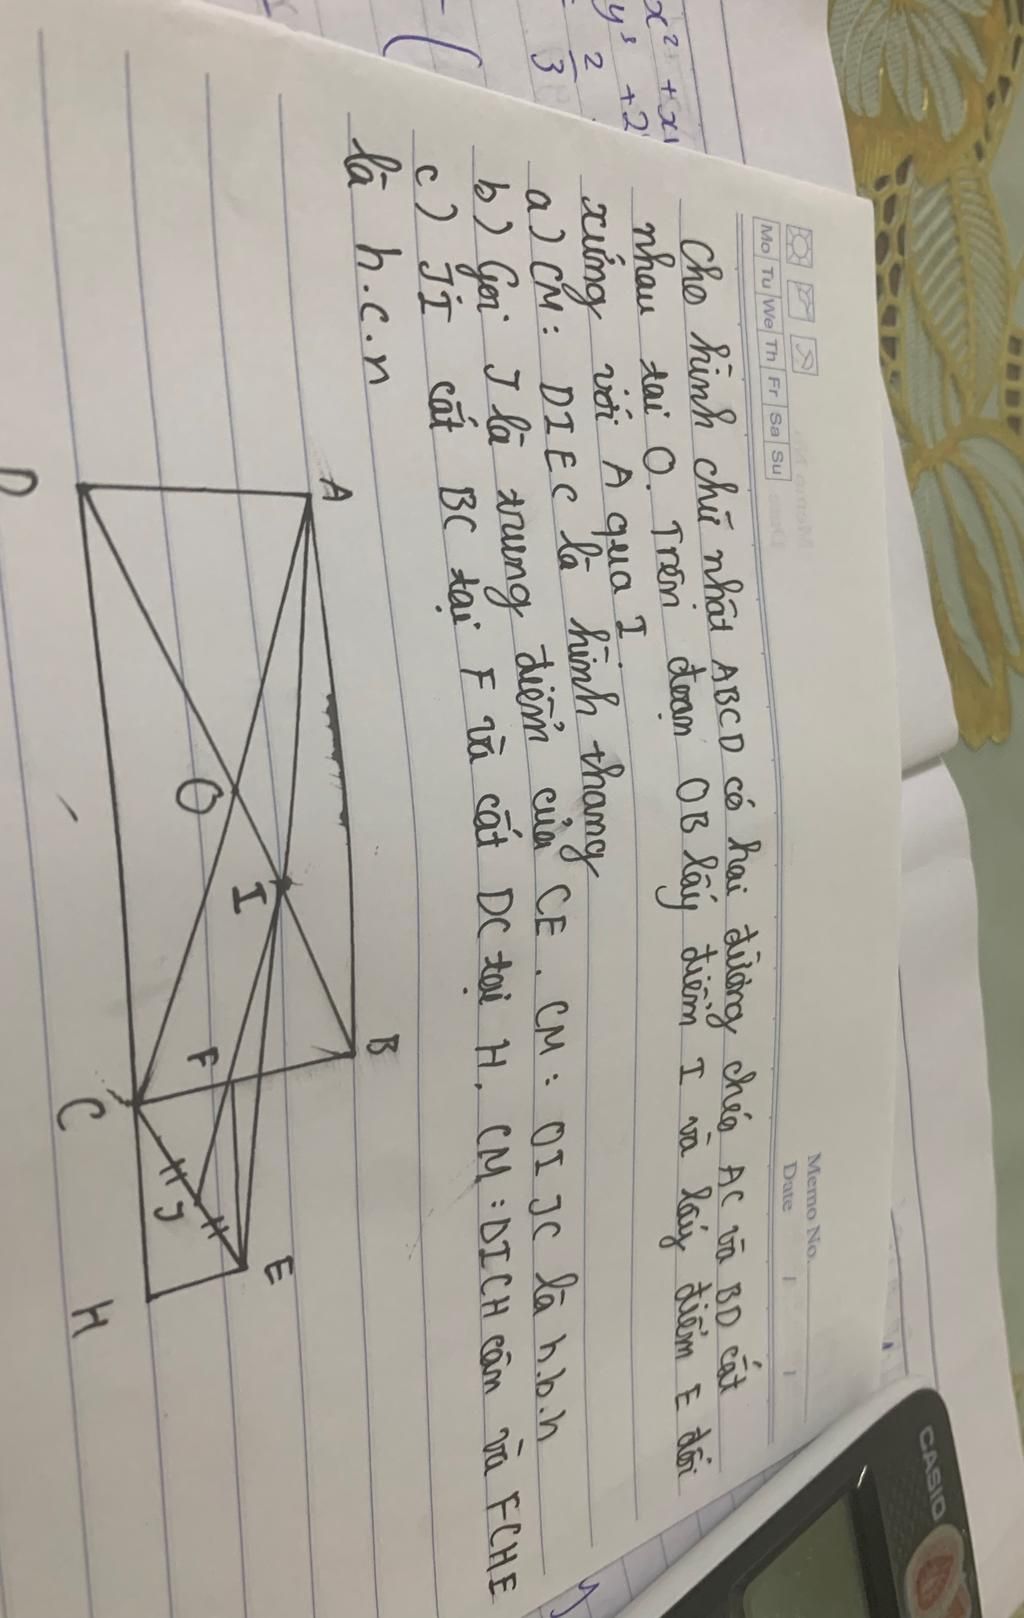 x² + x
y³ + 2
2
3
(
Memo No.
Date / /
Mo Tu We Th Fr Sa Su
Cho hình chữ nhật ABCD có hai đường chéo AC và BD cắt
nhau tại O. Trên đoạn OB lấy điểm I và lấy điểm E đối
xứng với A qua I
a) CM: DIEC là hình thang
b) Gọi J là trung điểm của CE. CM: OIJC là h.b.h
c) JI cắt BC tại F và cắt DC tại H. CM: DICH cân và FCHE
là h.c.n
A
B
E
I
F
J
O
D
C
H
CASIO